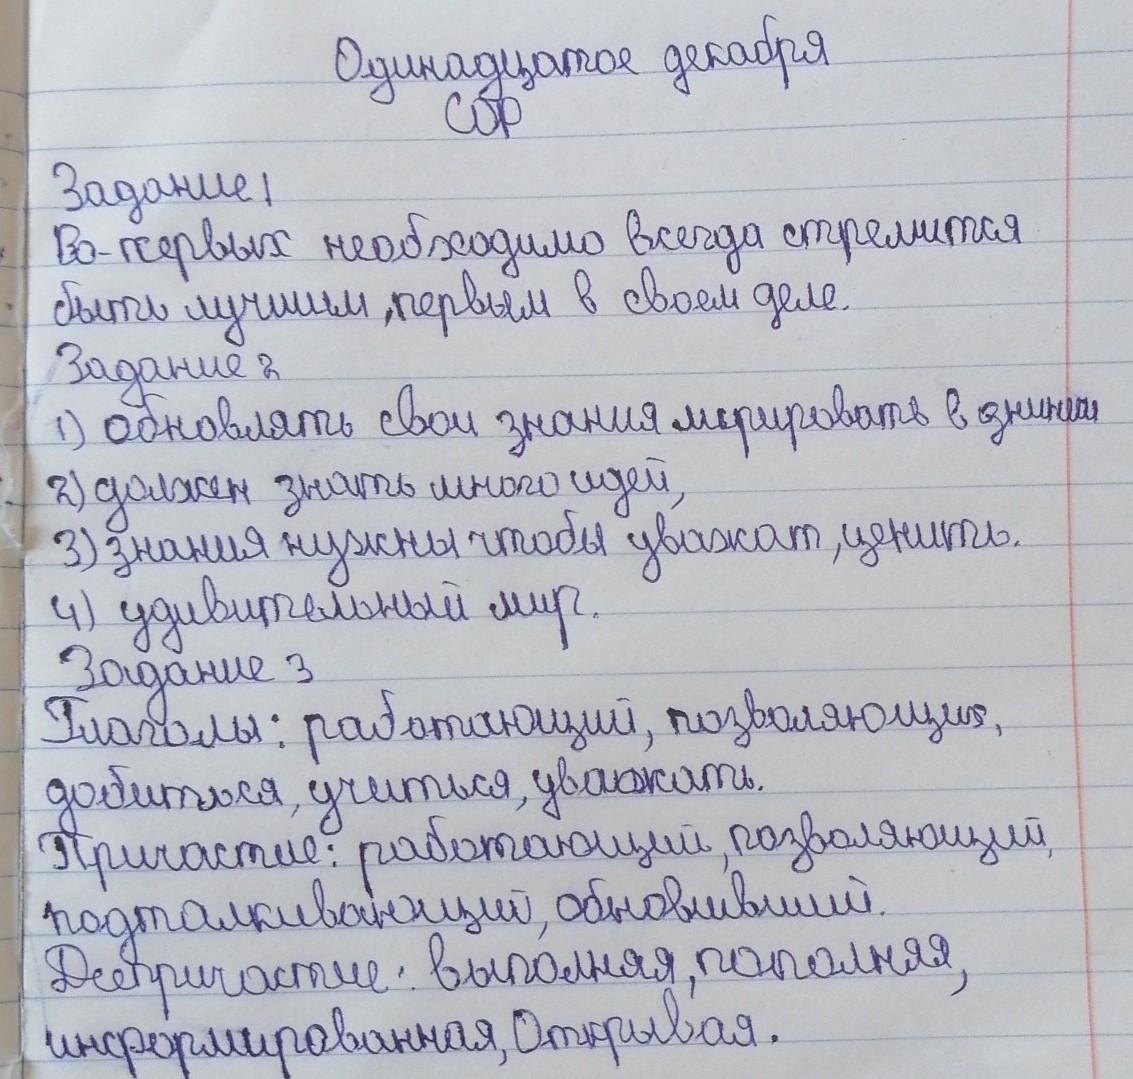 Одинадцатое декабря
СОР
Задание 1
Во-первых необходимо всегда стремится
быть лучшим, первым в своем деле.
Задание 2
1) обновлять свои знания в
2) должен знать много идей,
3) знания нужны чтобы уважат, ценить.
4) удивительный мир.
Задание 3
Глаголы: работающий, позволяющих,
добиться, учиться, уважать.
Причастие: работающий, позволяющий,
подталкивающий, обновливший.
Деепричастие: выполняя, пополняя,
информированная, Открывая.